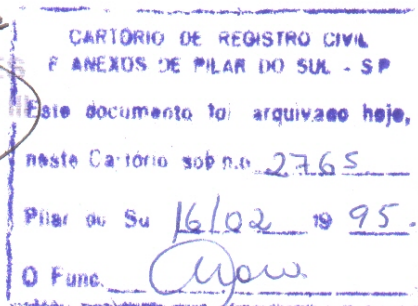 CARTÓRIO DE REGISTRO CIVIL
E ANEXOS DE PILAR DO SUL - SP
Este documento foi arquivado hoje,
neste Cartório sob n.o 2765
Pilar do Sul 16/02 19 95.
O Func.